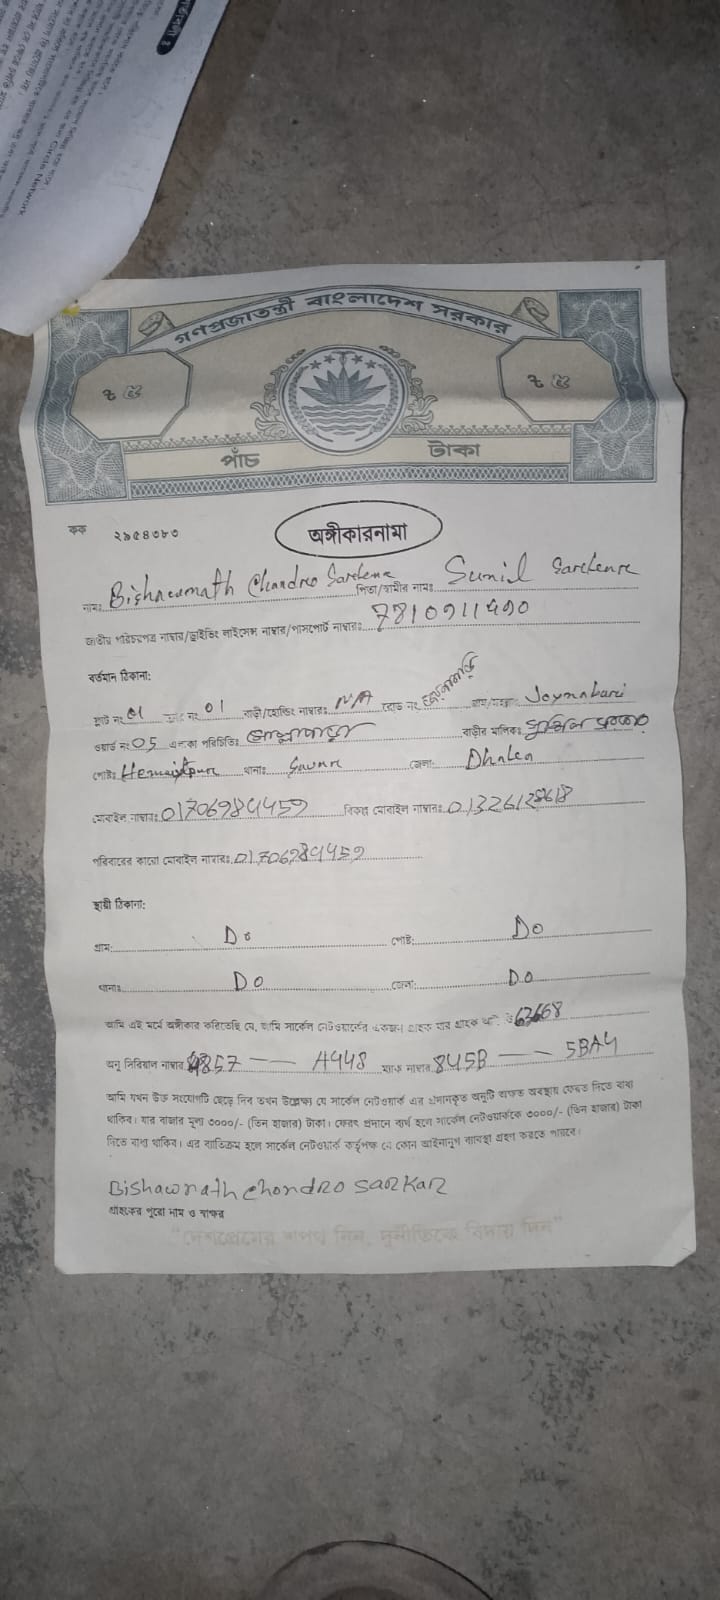 গণপ্রজাতন্ত্রী বাংলাদেশ সরকার
৳ ৫ ৳ ৫
পাঁচ টাকা
কক ২৯৫৪৩৮৩
অঙ্গীকারনামা
নামঃ Bishawnath Chandro Sarkar পিতা/স্বামীর নামঃ Sunil Sarkar
জাতীয় পরিচয়পত্র নাম্বার/ড্রাইভিং লাইসেন্স নাম্বার/পাসপোর্ট নাম্বারঃ 7810911490
বর্তমান ঠিকানা:
ফ্ল্যাট নং 01 নং 01 বাড়ী/হোল্ডিং নাম্বারঃ N/A রোড নং গ্রাম/মহল্লাঃ Joynabari
ওয়ার্ড নং 05 এলাকা পরিচিতিঃ বাড়ীর মালিকঃ
পোষ্টঃ Hemaietpur থানাঃ Savar জেলাঃ Dhaka
মোবাইল নাম্বারঃ 01706984459 বিকল্প মোবাইল নাম্বারঃ 01326128618
পরিবারের কারো মোবাইল নাম্বারঃ 01706984459
স্থায়ী ঠিকানা:
গ্রাম: Do পোষ্ট: Do
থানাঃ Do জেলা: Do
আমি এই মর্মে অঙ্গীকার করিতেছি যে, আমি সার্কেল নেটওয়ার্কের একজন গ্রাহক যার গ্রাহক 63668
অনু সিরিয়াল নাম্বার 4857 —— A448 ম্যাক নাম্বার 845B —— 5BA4
আমি যখন উক্ত সংযোগটি ছেড়ে দিব তখন উল্লেক্ষ্য যে সার্কেল নেটওয়ার্ক এর প্রদানকৃত অনুটি অক্ষত অবস্থায় ফেরত দিতে বাধ্য
থাকিব। যার বাজার মূল্য ৩০০০/- (তিন হাজার) টাকা। ফেরৎ প্রদানে ব্যর্থ হলে সার্কেল নেটওয়ার্ককে ৩০০০/- (তিন হাজার) টাকা
দিতে বাধ্য থাকিব। এর ব্যতিক্রম হলে সার্কেল নেটওয়ার্ক কর্তৃপক্ষ যে কোন আইনানুগ ব্যবস্থা গ্রহণ করতে পারবে।
Bishawnath Chondro Sarkar
গ্রাহকের পুরো নাম ও স্বাক্ষর
“দেশপ্রেমের শপথ নিন, দুর্নীতিকে বিদায় দিন”